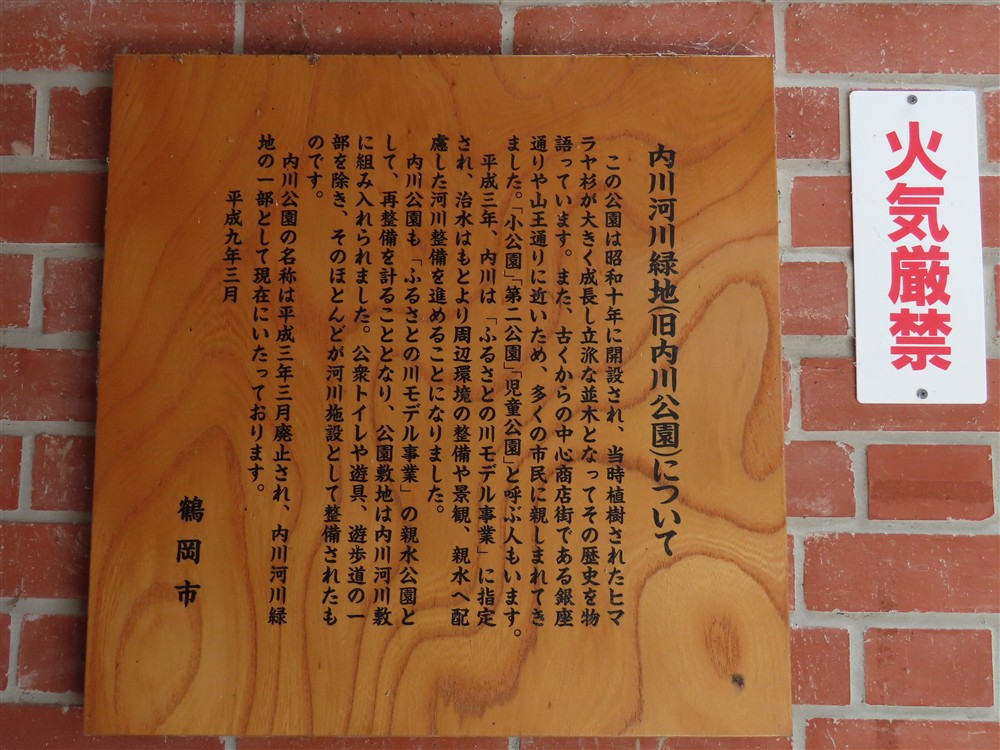 内川河川緑地(旧内川公園)について
この公園は昭和十年に開設され、当時植樹されたヒマ
ラヤ杉が大きく成長し立派な並木となってその歴史を物
語っています。また、古くからの中心商店街である銀座
通りや山王通りに近いため、多くの市民に親しまれてき
ました。「小公園」「第二公園」「児童公園」と呼ぶ人もいます。
平成三年、内川は、「ふるさとの川モデル事業」に指定
され、治水はもとより周辺環境の整備や景観、親水へ配
慮した河川整備を進めることになりました。
内川公園も、「ふるさとの川モデル事業」の親水公園と
して、再整備を計ることとなり、公園敷地は内川河川敷
に組み入れられました。公衆トイレや遊具、遊歩道の一
部を除き、そのほとんどが河川施設として整備されたも
のです。
内川公園の名称は平成三年三月廃止され、内川河川緑
地の一部として現在にいたっております。
平成九年三月
鶴岡市
火気厳禁